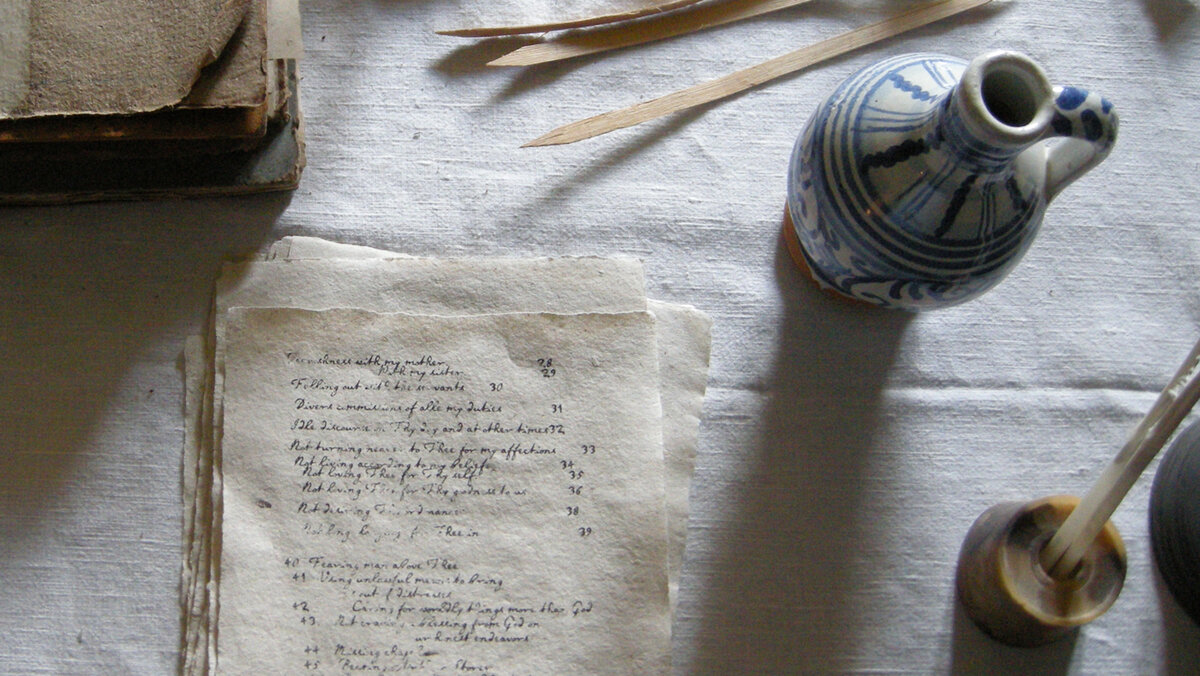 with my mother 28
With my sister 29
Falling out with the servants 30
Divers commissions of alle my duties 31
Idle discourse on Thy day and at other times 32
Not turning nearer to Thee for my affections 33
Not living according to my belief 34
Not loving Thee for Thy self 35
Not loving Thee for Thy goodness to us 36
Not desiring Thy ordinances 38
Not long for Thee in 39
40 Fearing man above Thee
41 Using unlawful means to bring
out of distresses
42 Caring for worldly things more than God
43 Not craving blessing from God on
our honest endeavors
44 Missing chapel
45